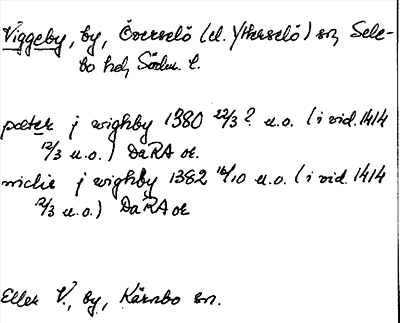 Viggeby, by, Överselö (el. Ytterselö) sn, Sele-
bo hd, Södm. l.
peter j wighby 1380 22/3? u.o. (i vid. 1414
12/3 u.o.) DaRA or.
niclis j wighby 1382 16/10 u.o. (i vid. 1414
12/3 u.o.) DaRA or
Eller V., by, Kärnbo sn.